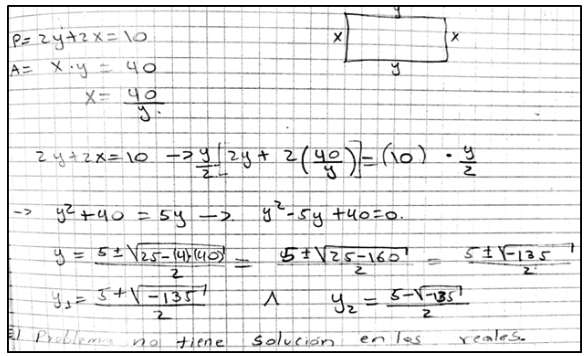 P= 2y+2x=10
A= x·y = 40
x= 40/y.
y
x x
y
2y+2x=10 → y/2 [2y + 2(40/y)] = (10) · y/2
→ y²+40 = 5y → y²-5y+40=0.
y = 5±√25-(4)(40) / 2 = 5±√25-160 / 2 = 5±√-135 / 2
y₁= 5+√-135 / 2 ∧ y₂ = 5-√-135 / 2
El Problema no tiene solución en los reales.